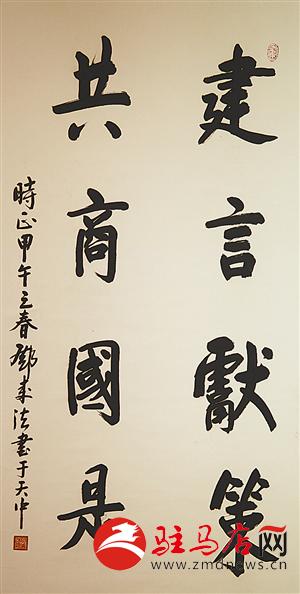 建言獻策
共商國是
時正甲午立春鄧來法書于天中
驻马店网
www.zmdnews.cn